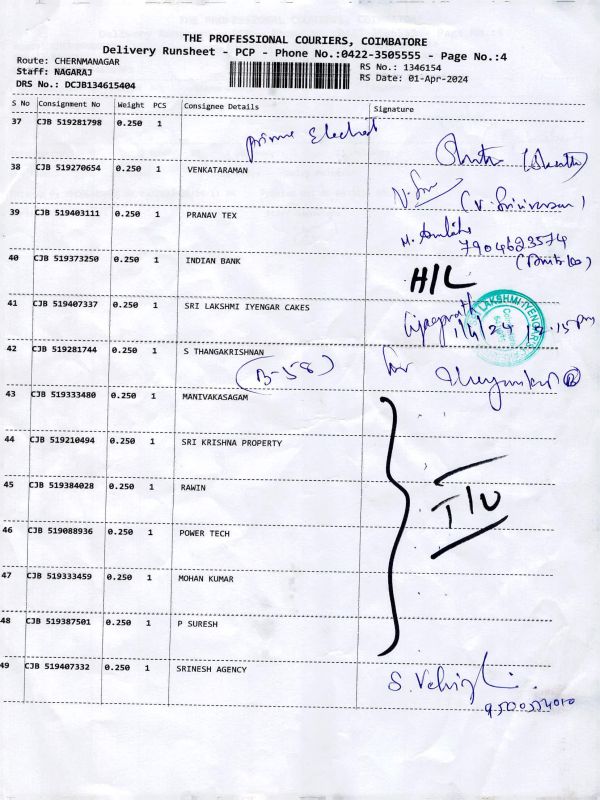 THE PROFESSIONAL COURIERS, COIMBATORE
Delivery Runsheet - PCP - Phone No.:0422-3505555 - Page No.:4
Route: CHERNMANAGAR
Staff: NAGARAJ
DRS No.: DCJB134615404
RS No.: 1346154
RS Date: 01-Apr-2024
S No Consignment No Weight PCS Consignee Details Signature
37 CJB 519281798 0.250 1
38 CJB 519270654 0.250 1 VENKATARAMAN
(V. Srinivasan)
39 CJB 519403111 0.250 1 PRANAV TEX
7904623574
40 CJB 519373250 0.250 1 INDIAN BANK H/L
41 CJB 519407337 0.250 1 SRI LAKSHMI IYENGAR CAKES
LAKSHMI-IYENGAR
1/4/24
42 CJB 519281744 0.250 1 S THANGAKRISHNAN
(B-58) for
43 CJB 519333480 0.250 1 MANIVAKASAGAM
44 CJB 519210494 0.250 1 SRI KRISHNA PROPERTY
45 CJB 519384028 0.250 1 RAWIN
46 CJB 519088936 0.250 1 POWER TECH
47 CJB 519333459 0.250 1 MOHAN KUMAR
48 CJB 519387501 0.250 1 P SURESH
49 CJB 519407332 0.250 1 SRINESH AGENCY